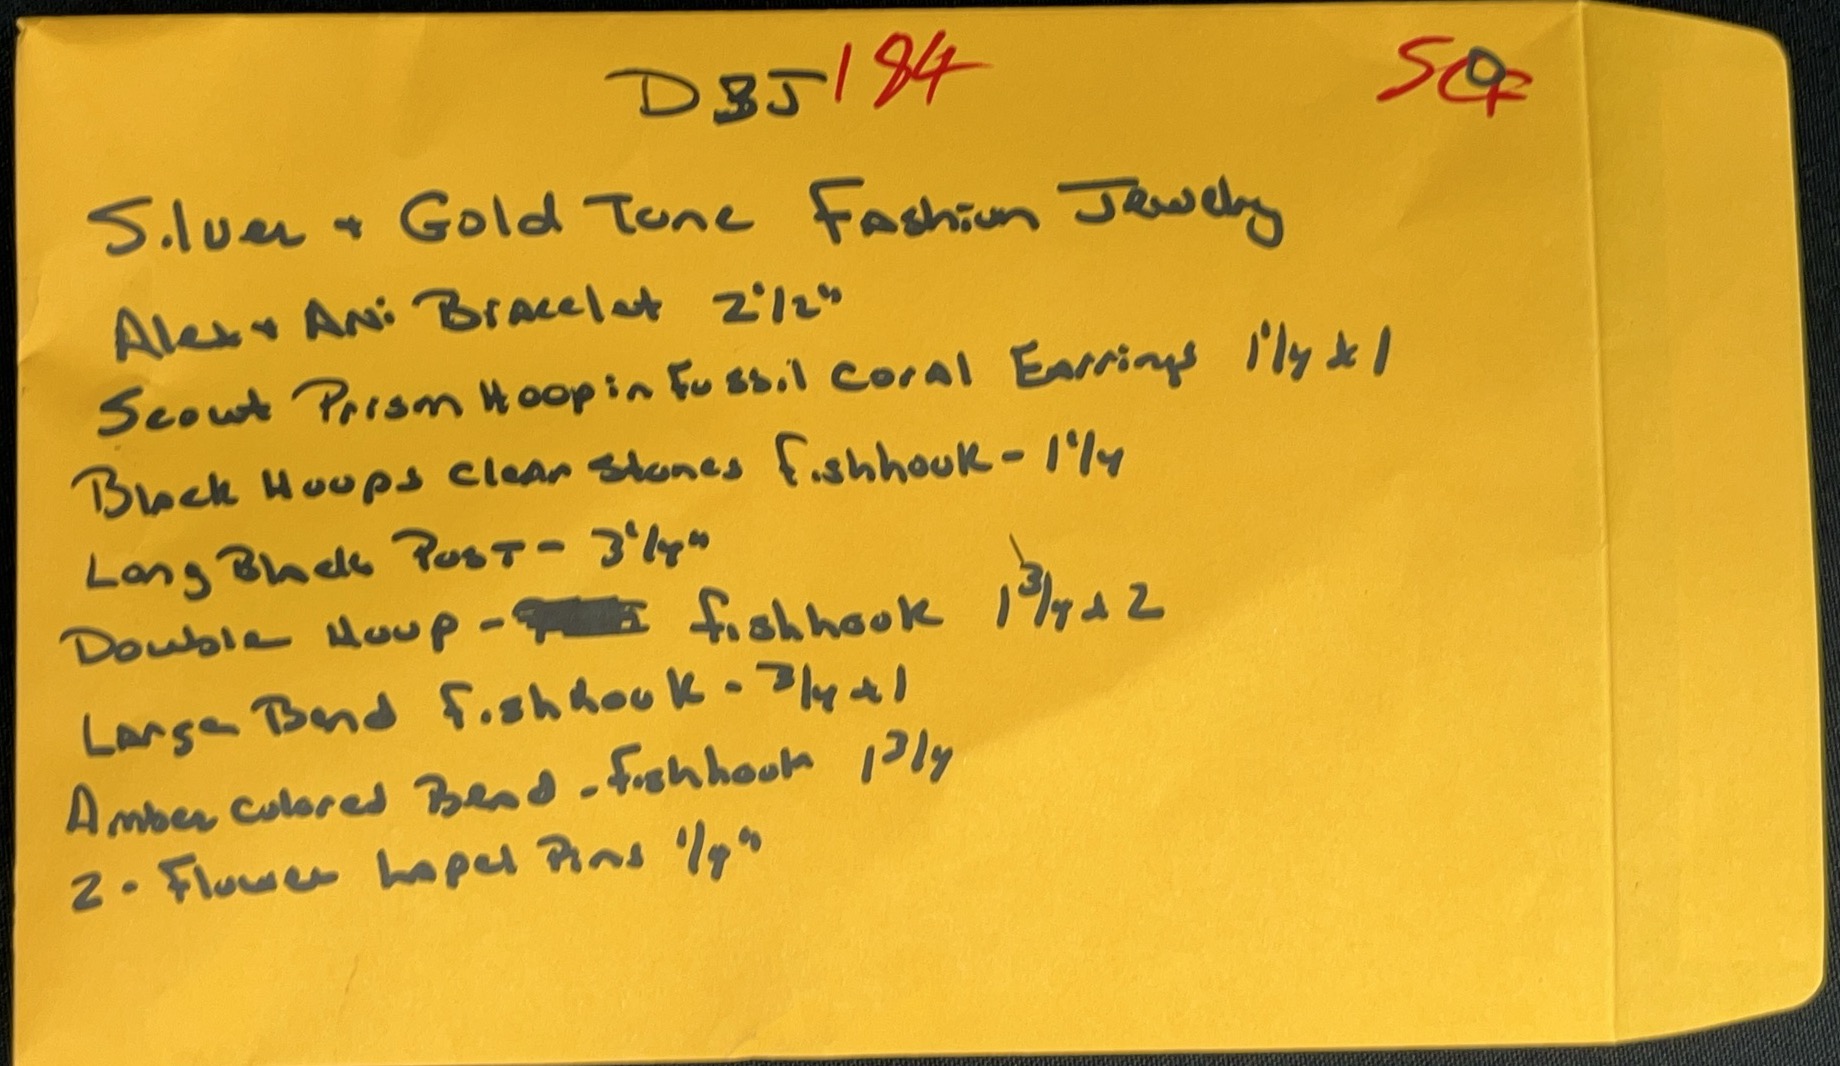 DBJ 184
Silver + Gold Tone Fashion Jewelry
Alex + Ani Bracelet 2 1/2"
Scout Prism Hoop in Fossil Coral Earrings 1 1/4 x 1
Black Hoops Clear Stones fishhook - 1 1/4
Long Black Post - 3 1/4"
Double Hoop - fishhook 1 3/4 x 2
Large Bead fishhook - 3/4 x 1
Amber colored Bead - fishhook 1 3/4
2 - Flower Lapel Pins 1/4"